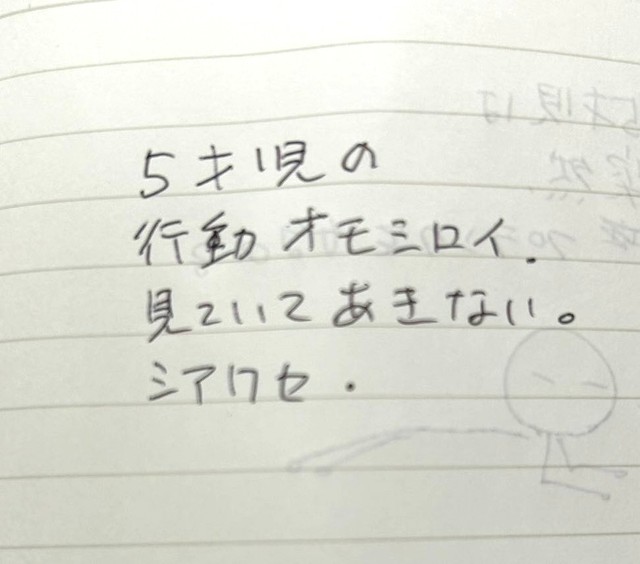 5才児の
行動オモシロイ.
見ていてあきない。
シアワセ.